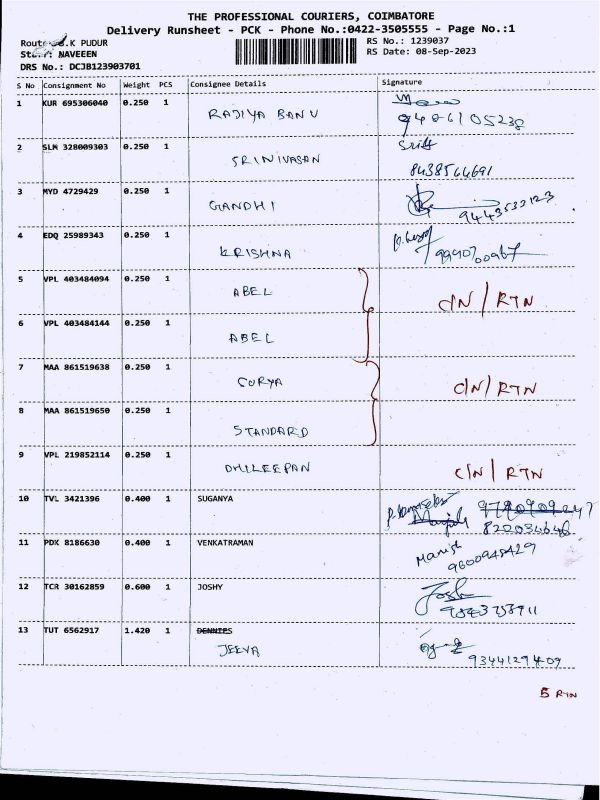 THE PROFESSIONAL COURIERS, COIMBATORE
Delivery Runsheet - PCK - Phone No.:0422-3505555 - Page No.:1
K PUDUR
RS No.: 1239037
NAVEEEN
RS Date: 08-Sep-2023
DRS No.: DCJB123903701
S No Consignment No Weight PCS Consignee Details Signature
1 KUR 695306040 0.250 1 RAJIYA BANU
9486105238
2 SLM 328009303 0.250 1 SRINIVASAN
8438564691
3 MYD 4729429 0.250 1 GANDHI
9443533123
4 EDQ 25989343 0.250 1 KRISHNA
5 VPL 403484094 0.250 1 ABEL C/N / RTN
6 VPL 403484144 0.250 1 ABEL
7 MAA 861519638 0.250 1 CURYA C/N / RTN
8 MAA 861519650 0.250 1 STANDARD
9 VPL 219852114 0.250 1 DHILEEPAN C/N / RTN
10 TVL 3421396 0.400 1 SUGANYA
11 PDX 8186630 0.400 1 VENKATRAMAN Manish
9600948429
12 TCR 30162859 0.600 1 JOSHY
13 TUT 6562917 1.420 1 DENNIES
JEEVA
9344129409
5 RTN